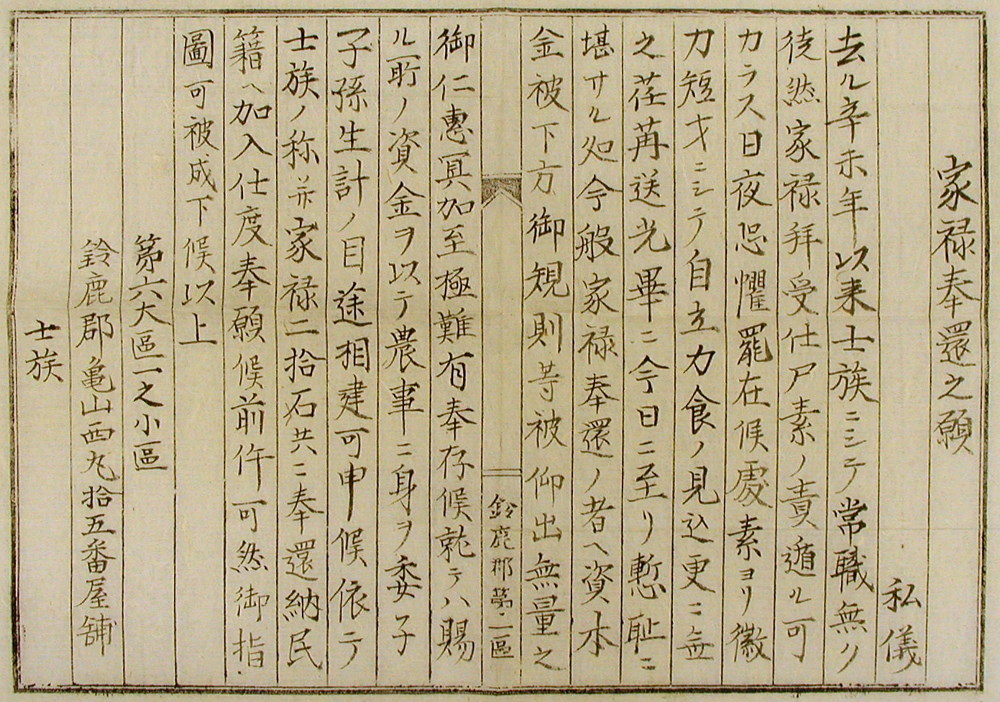 家禄奉還之願
私儀
去ル辛未年以来士族ニシテ常職無ク
徒然家禄拝受仕尸素ノ責遁ル可
カラス日夜恐懼罷在候処素ヨリ微
力短才ニシテ自立力食ノ見込更ニ無
之荏苒送光畢ニ今日ニ至リ慙耻ニ
堪サル処今般家禄奉還ノ者ヘ資本
金被下方御規則等被仰出無量之
鈴鹿郡第二區
御仁惠冥加至極難有奉存候就テハ賜
ル所ノ資金ヲ以テ農事ニ身ヲ委子
子孫生計ノ目途相建可申候依テ
士族ノ称并家禄二拾石共ニ奉還納民
籍ヘ加入仕度奉願候前件可然御指
圖可被成下候以上
第六大區一之小區
鈴鹿郡亀山西丸拾五番屋舗
士族